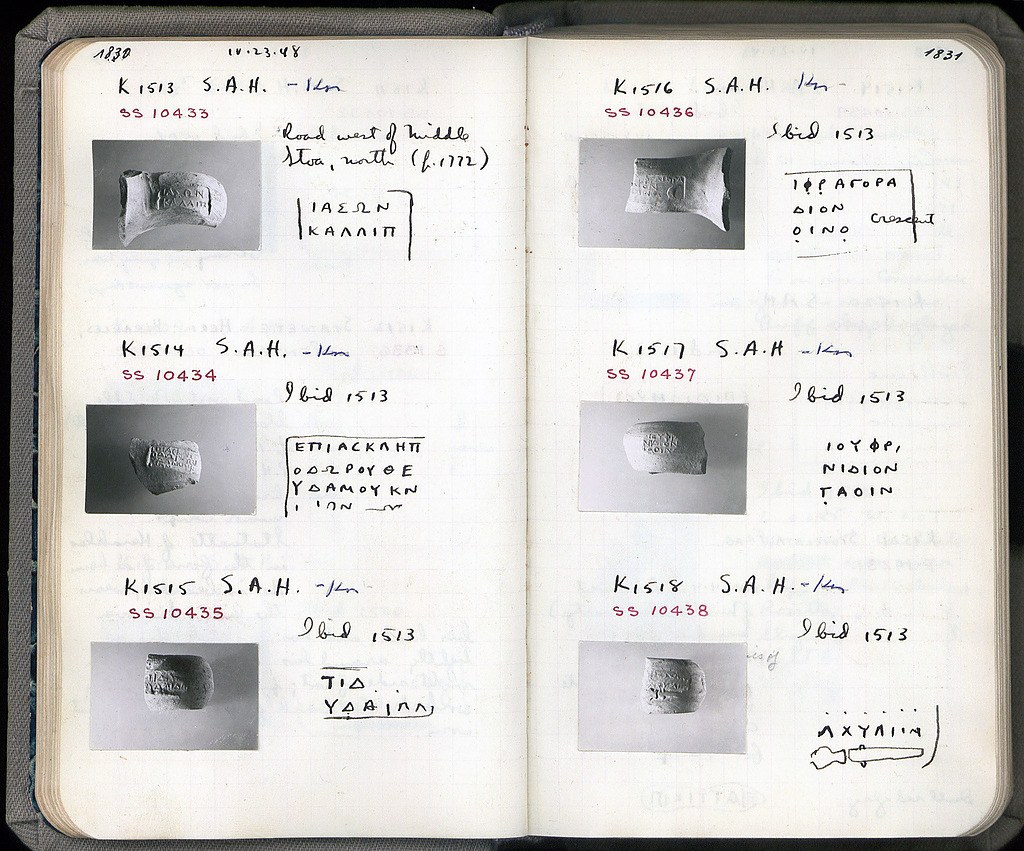 1830 IV.23.48
K1513 S.A.H. - Kn
SS 10433
Road west of Middle
Stoa, north (p. 1772)
ΙΑΣΩΝ
ΚΑΛΛΙΠ
K1514 S.A.H. - Kn
SS 10434
Ibid 1513
ΕΠΙΑΣΚΛΗΠ
ΟΔΩΡΟΥΘΕ
ΥΔΑΜΟΥΚΝ
K1515 S.A.H. - Kn
SS 10435
Ibid 1513
ΤΙΔ
1831
K1516 S.A.H. Kn -
SS 10436
Ibid 1513
ΙΦΡΑΓΟΡΑ
ΔΙΟΝ crescent
ΟΙΝΟ
K1517 S.A.H - Kn
SS 10437
Ibid 1513
ΙΟΥΦΡΙ
ΝΙΔΙΟΝ
ΤΑΟΙΝ
K1518 S.A.H. - Kn
SS 10438
Ibid 1513